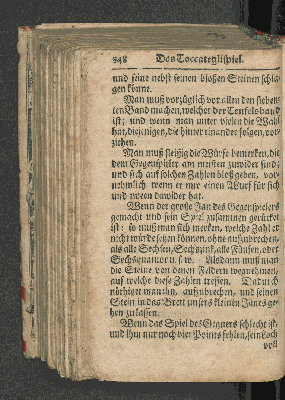 248 Das Toccateglispiel.
und seine nebst seinen bloßen Steinen schla-
gen könne.
Man muß vorzüglich vor allen den sieben-
ten Band machen, welcher der Teufels band
ist; und wenn man unter vielen die Wahl
hat, diejenigen, die hinter einander folgen, vor-
ziehen.
Man muß fleißig die Würfe bemerken, die
dem Gegenspieler am meisten zuwider sind;
und sich auf solchen Zahlen bloß geben, vor-
nehmlich wenn er nur einen Wurf für sich
und zween dawider hat.
Wenn der große Jan des Gegenspielers
gemacht und sein Spiel zusammen gerücket
ist: so muß man sich merken, welche Zahl er
nicht würde setzen können, ohne aufzubrechen,
als alle Sechsen, Sechszink, alle Fünfen, oder
Sechsquatuor u. s. w. Alsdann muß man
die Steine von denen Feldern wegnehmen,
auf welche diese Zahlen treffen. Dadurch
nöthiget man ihn, aufzubrechen, und seinen
Stein in das Bret unsers kleinen Jans ge-
hen zu lassen.
Wenn das Spiel des Gegners schlecht ist,
und ihm nur noch vier Points fehlen, sein Loch
voll